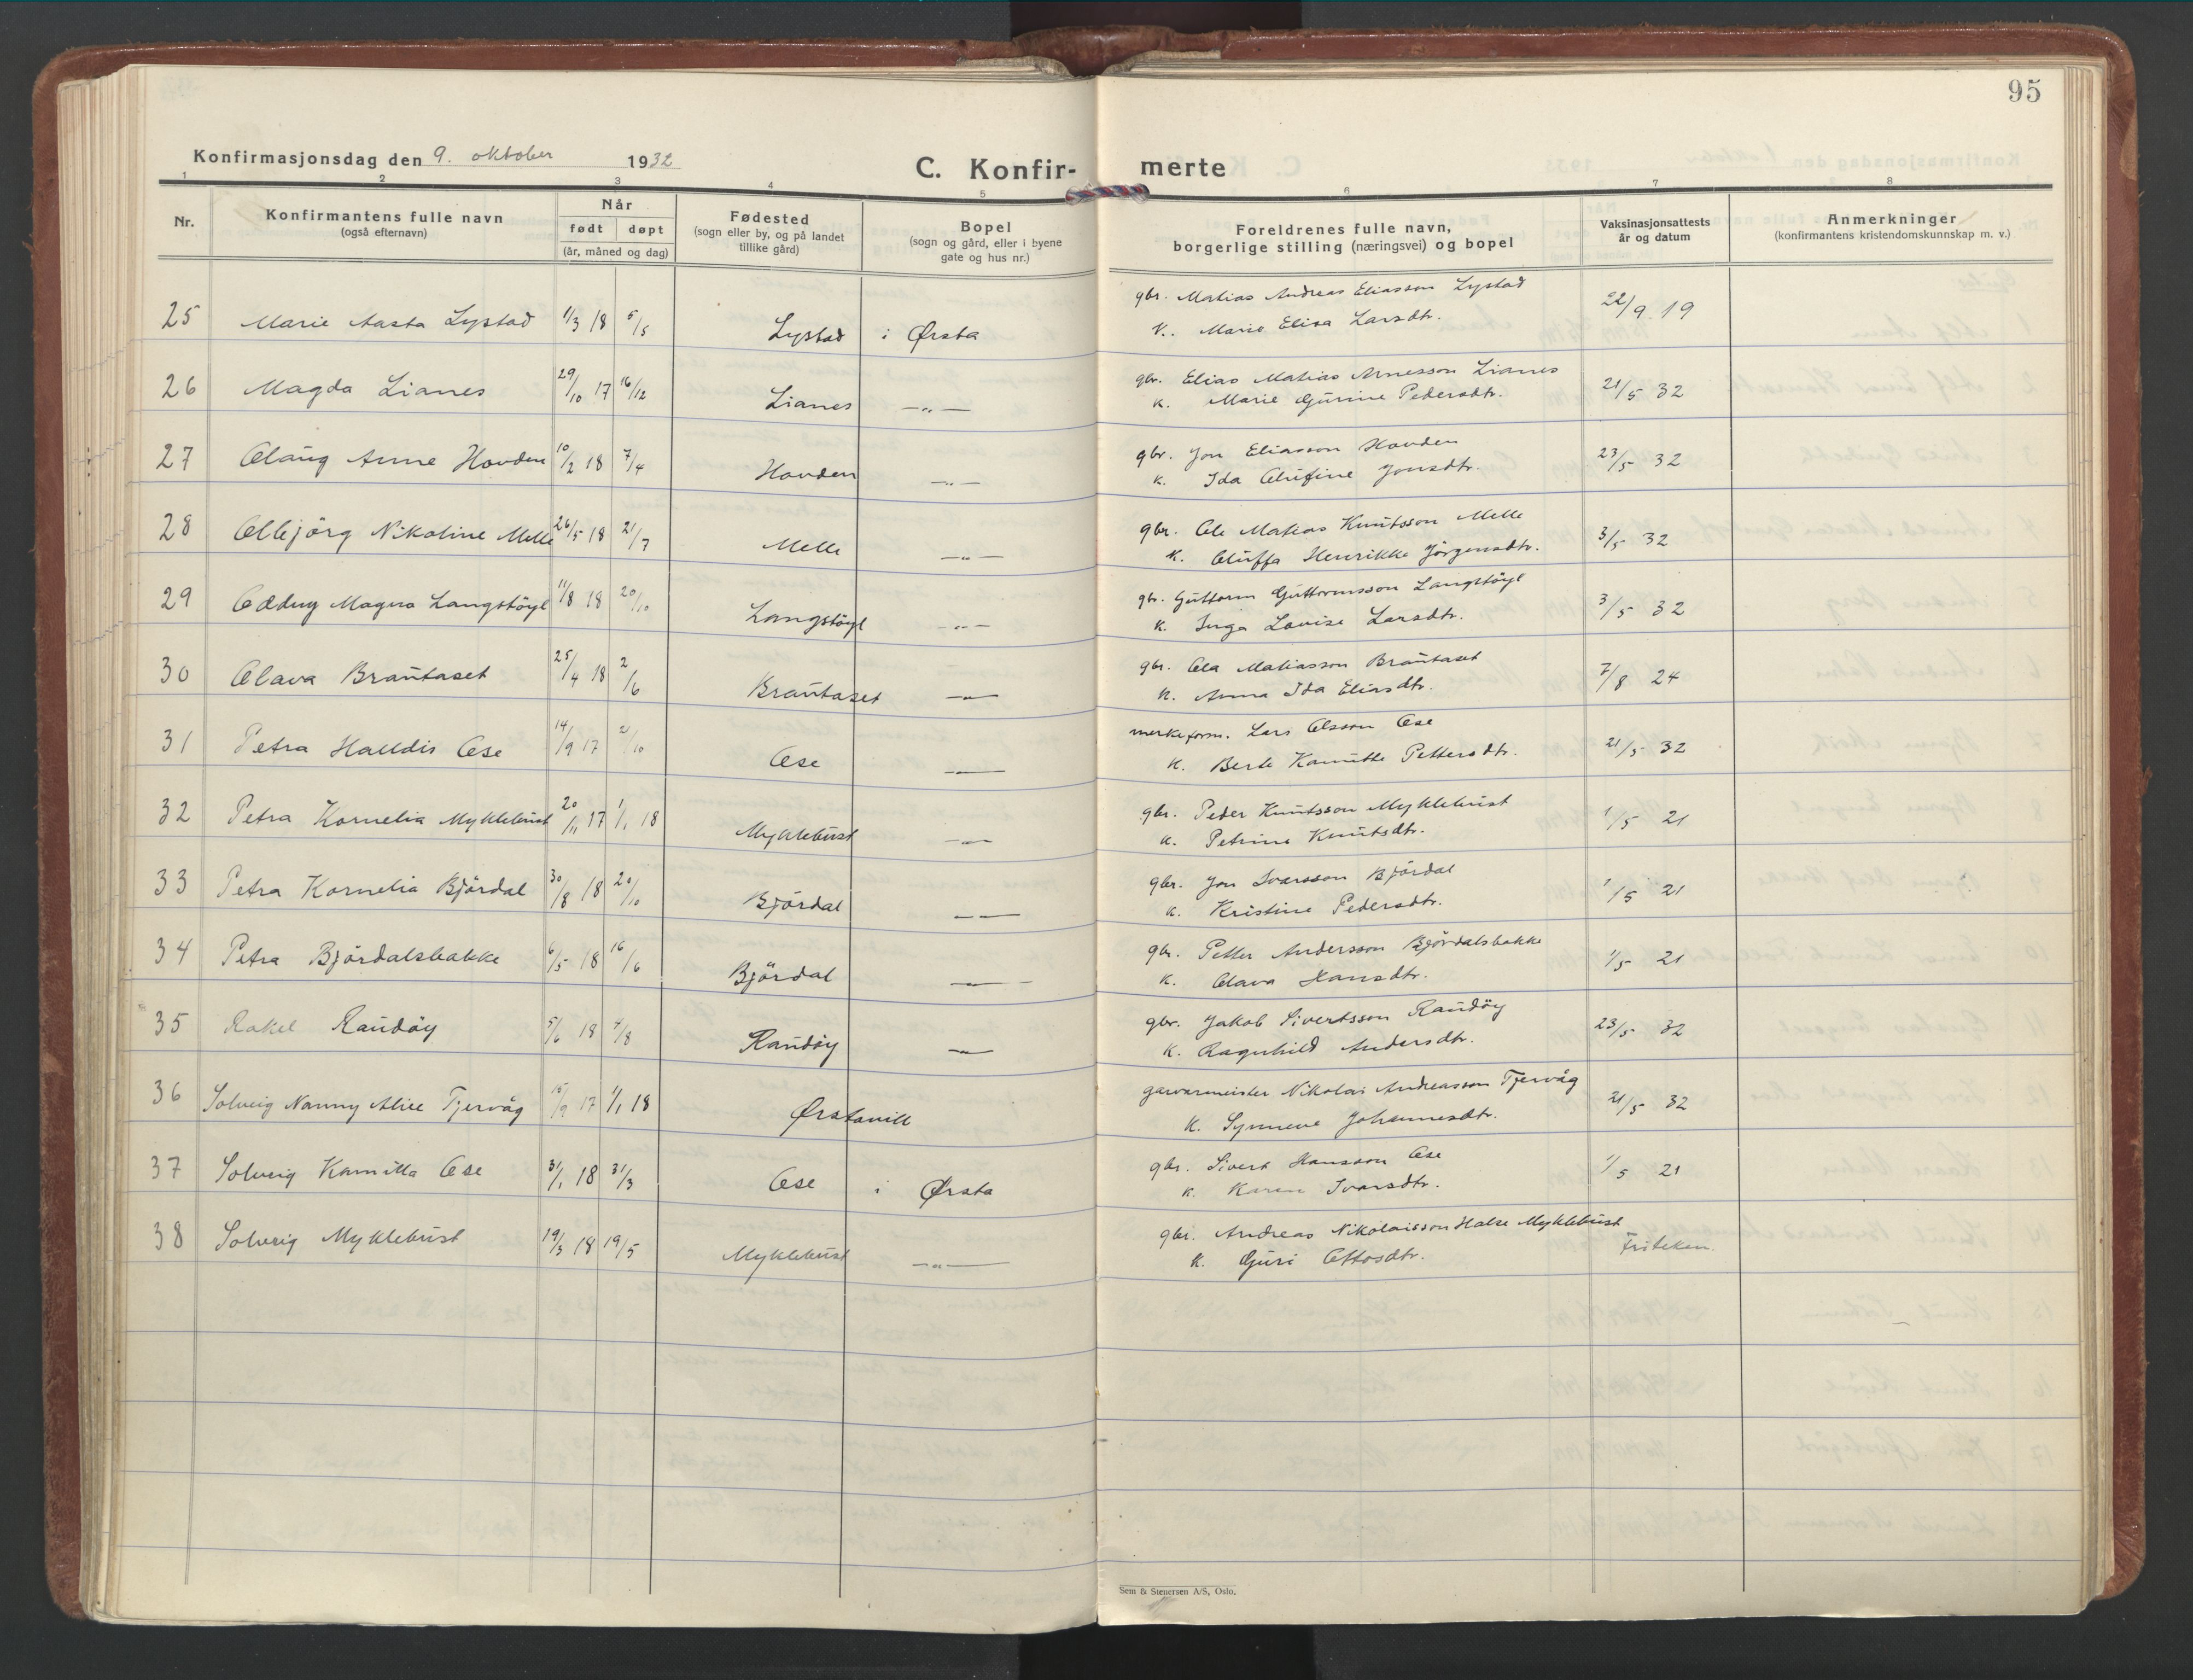 95
Konfirmasjonsdag den 9. oktober 1932
C. Konfir- merte
1 2 3 4 5 6 7 8
Nr. Konfirmantens fulle navn (også efternavn) Når født døpt (år, måned og dag) Fødested (sogn eller by, og på landet tillike gård) Bopel (sogn og gård, eller i byene gate og hus nr.) Foreldrenes fulle navn, borgerlige stilling (næringsvei) og bopel Vaksinasjonsattests år og datum Anmerkninger (konfirmantens kristendomskunnskap m. v.)
25 Marie Aasta Lystad 1/3 18 5/5 Lystad i Ørsta gbr. Matias Andreas Eliasson Lystad 22/9 19
K. Marie Elisa Larsdtr.
26 Magda Lianes 29/10 17 16/12 Lianes —„— gbr. Elias Matias Arnesson Lianes 21/5 32
K. Marie Gurine Pedersdtr.
27 Olaug Anne Hovden 10/2 18 7/4 Hovden —„— gbr. Jon Eliasson Hovden 23/5 32
K. Ida Olufine Jonsdtr.
28 Ollbjörg Nikoline Melle 26/5 18 21/7 Melle —„— gbr. Ole Matias Knutsson Melle 3/5 32
K. Oluffa Henrikke Jörgensdtr.
29 Oddny Magna Langstöyl 11/8 18 20/10 Langstöyl —„— gbr. Guttorm Guttormsson Langstöyl 3/5 32
K. Inga Lovise Larsdtr.
30 Olava Brautaset 25/4 18 2/6 Brautaset —„— gbr. Ola Matiasson Brautaset 7/8 24
K. Anna Ida Eliasdtr.
31 Petra Halldis Ose 14/9 17 21/10 Ose —„— merkeform. Lars Olsson Ose 21/5 32
K. Berte Kamitte Pettersdtr.
32 Petra Kornelia Myklebust 20/11 17 1/1 18 Myklebust —„— gbr. Peder Knutsson Myklebust 1/5 21
K. Petrina Knutsdtr.
33 Petra Kornelia Björdal 30/8 18 20/10 Björdal —„— gbr. Jon Ivarsson Björdal 1/5 21
K. Kristine Pedersdtr.
34 Petra Björdalsbakke 6/5 18 16/6 Björdal —„— gbr. Petter Andersson Björdalsbakke 1/5 21
K. Olava Hansdtr.
35 Rakel Raudöy 5/6 18 4/8 Raudöy —„— gbr. Jakob Sivertsson Raudöy 23/5 32
K. Ragnhild Andersdtr.
36 Solveig Nanny Alice Tjervåg 15/9 17 1/1 18 Ørstavik garvarmeister Nikolai Andreasson Tjervåg 21/5 32
K. Synneve Johannesdtr.
37 Solveig Kamilla Ose 31/1 18 31/3 Ose i Ørsta gbr. Sivert Hansson Ose 1/5 21
K. Karen Ivarsdtr.
38 Solveig Myklebust 19/3 18 19/5 Myklebust —„— gbr. Andreas Nikolaisson Halse Myklebust
K. Guri Ottosdtr. Friteken.
Sem & Stenersen A/S, Oslo.